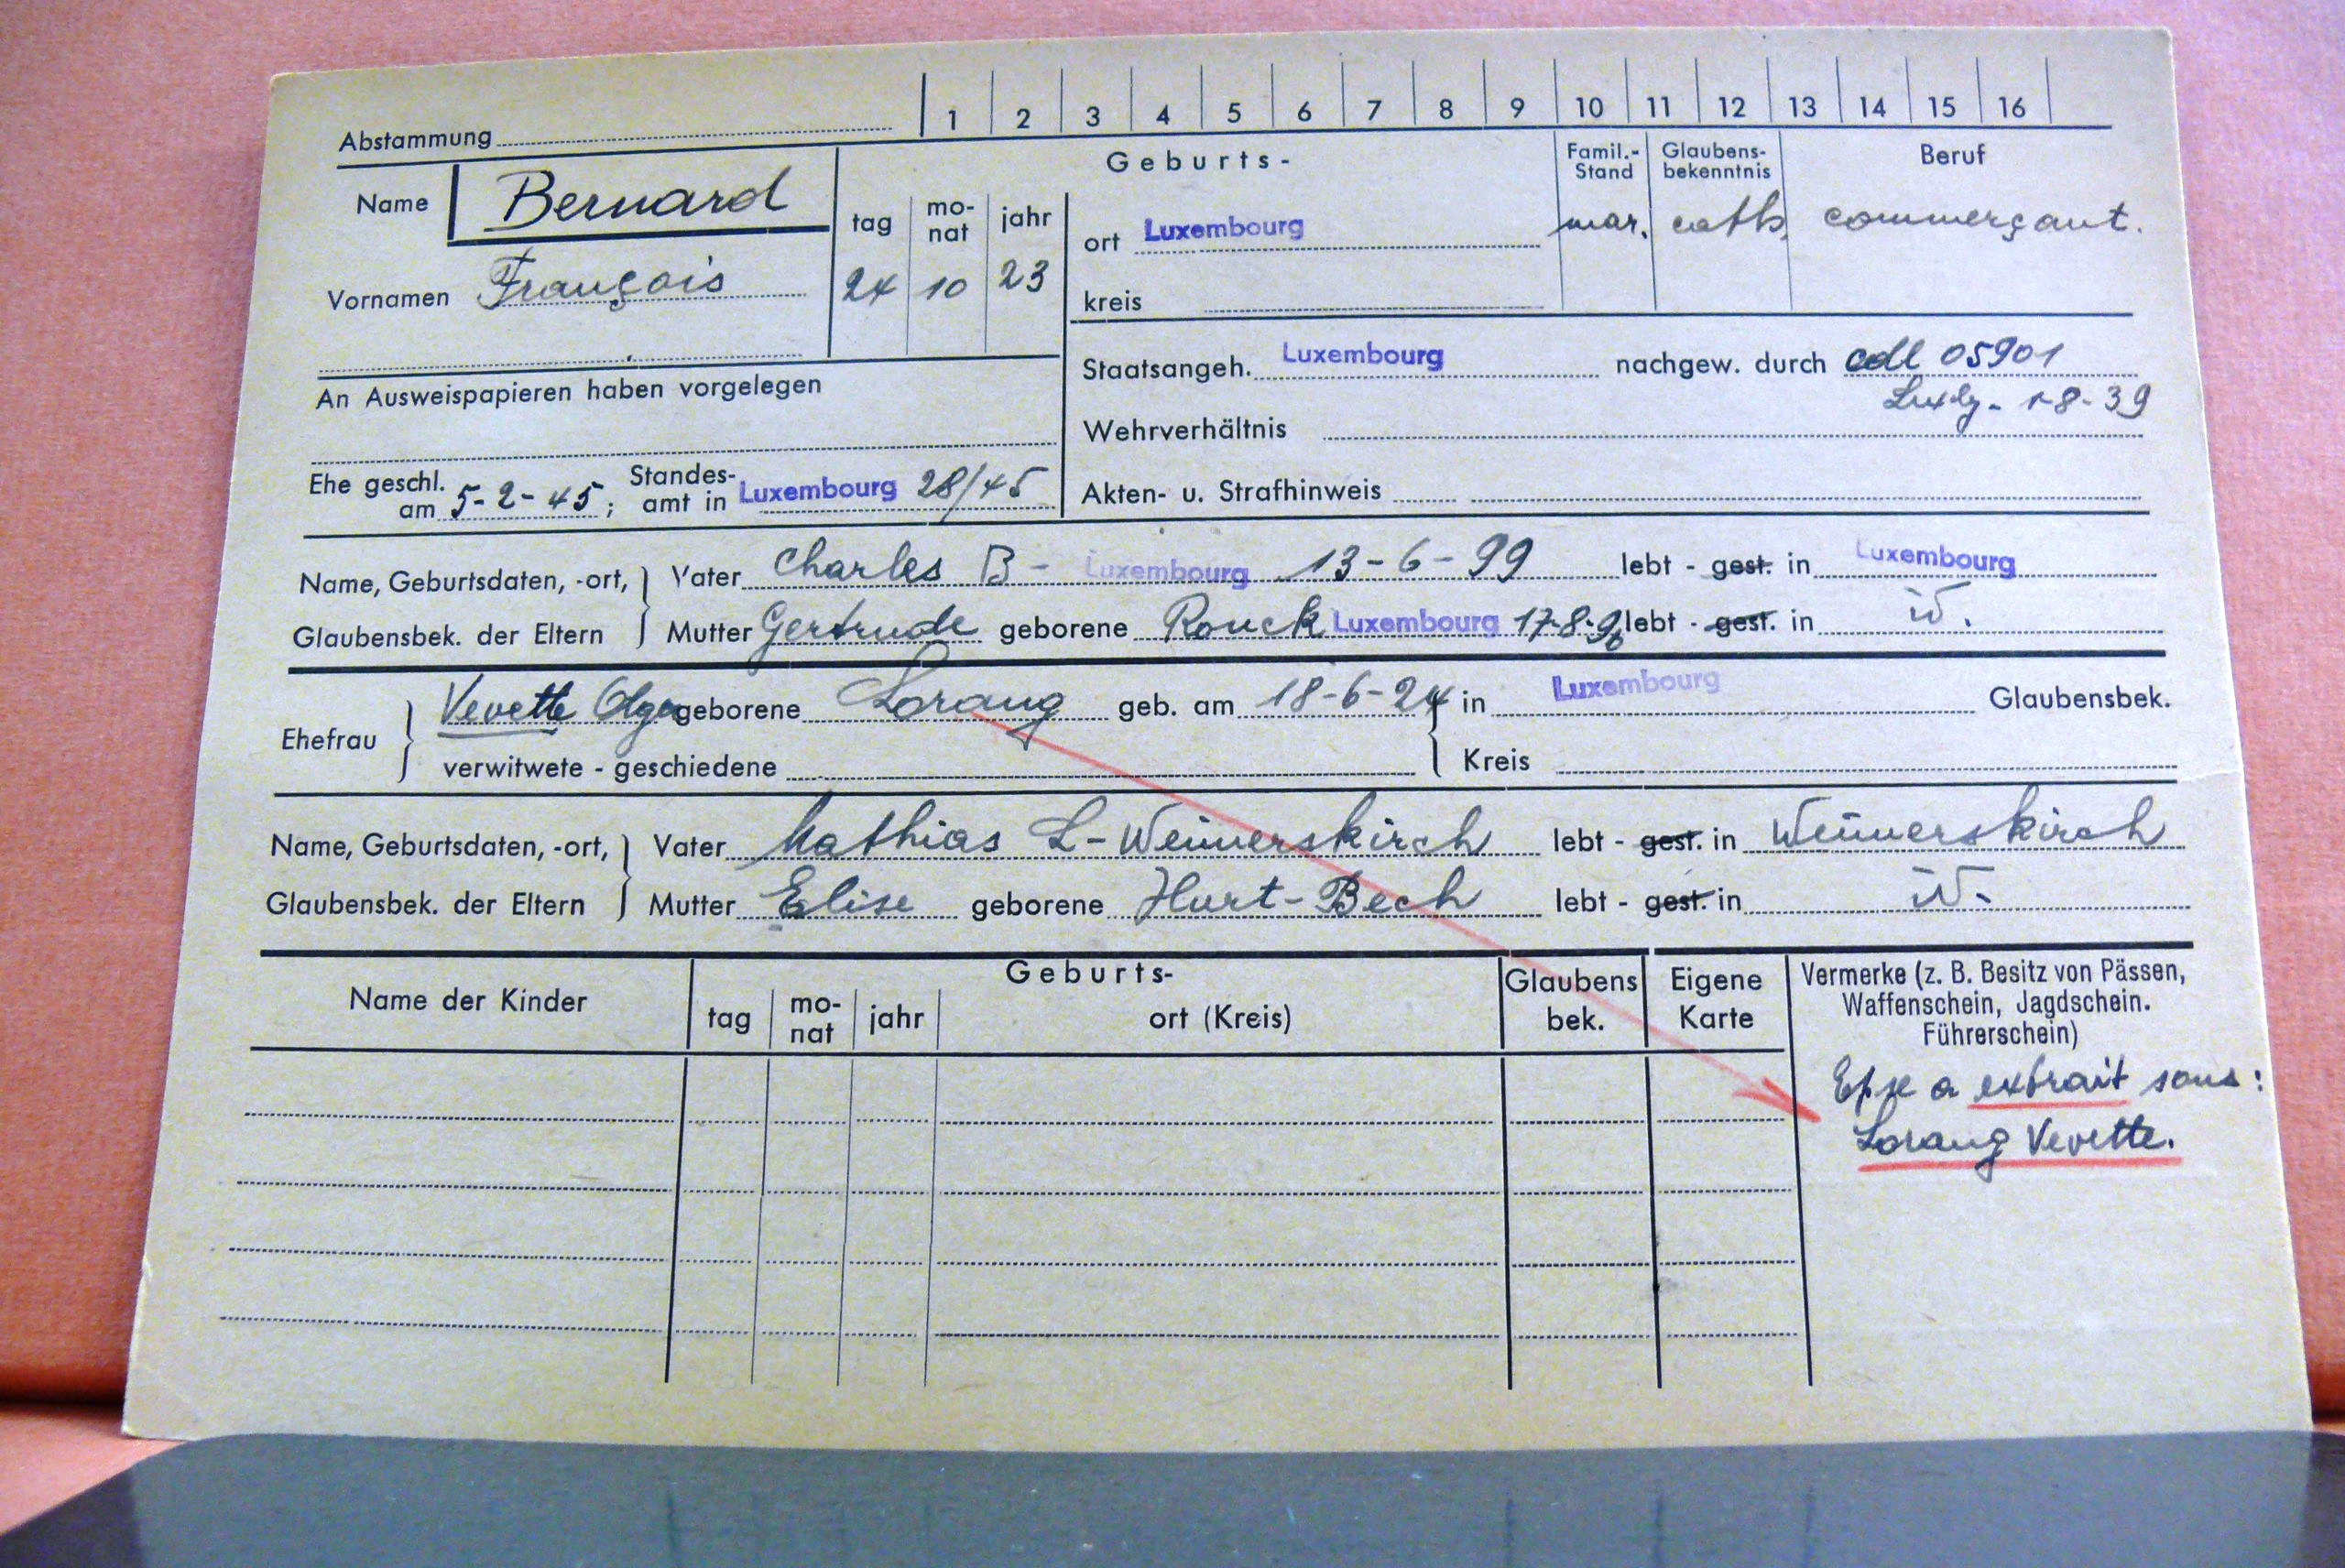 Abstammung 1 2 3 4 5 6 7 8 9 10 11 12 13 14 15 16
Name Bernard
Vornamen François
Geburts-
tag mo-nat jahr
24 10 23
ort Luxembourg
kreis
Famil.-Stand Glaubens-bekenntnis Beruf
mar. cath. commerçant.
An Ausweispapieren haben vorgelegen
Staatsangeh. Luxembourg nachgew. durch cdl 05901
Luxbg - 1-8-39
Wehrverhältnis
Ehe geschl. am 5-2-45; Standes-amt in Luxembourg 28/45
Akten- u. Strafhinweis
Name, Geburtsdaten, -ort, Vater Charles B - Luxembourg 13-6-99 lebt - gest. in Luxembourg
Glaubensbek. der Eltern Mutter Gertrude geborene Rouck Luxembourg 17-8-96 lebt - gest. in
Ehefrau Vevette Olga geborene Lorang geb. am 18-6-24 in Luxembourg Glaubensbek.
verwitwete - geschiedene Kreis
Name, Geburtsdaten, -ort, Vater Mathias L - Weimerskirch lebt - gest. in Weimerskirch
Glaubensbek. der Eltern Mutter Elise geborene Hurt - Bech lebt - gest. in
Name der Kinder
Geburts-
tag mo-nat jahr ort (Kreis)
Glaubens bek.
Eigene Karte
Vermerke (z. B. Besitz von Pässen,
Waffenschein, Jagdschein.
Führerschein)
Epse a extrait sous:
Lorang Vevette.